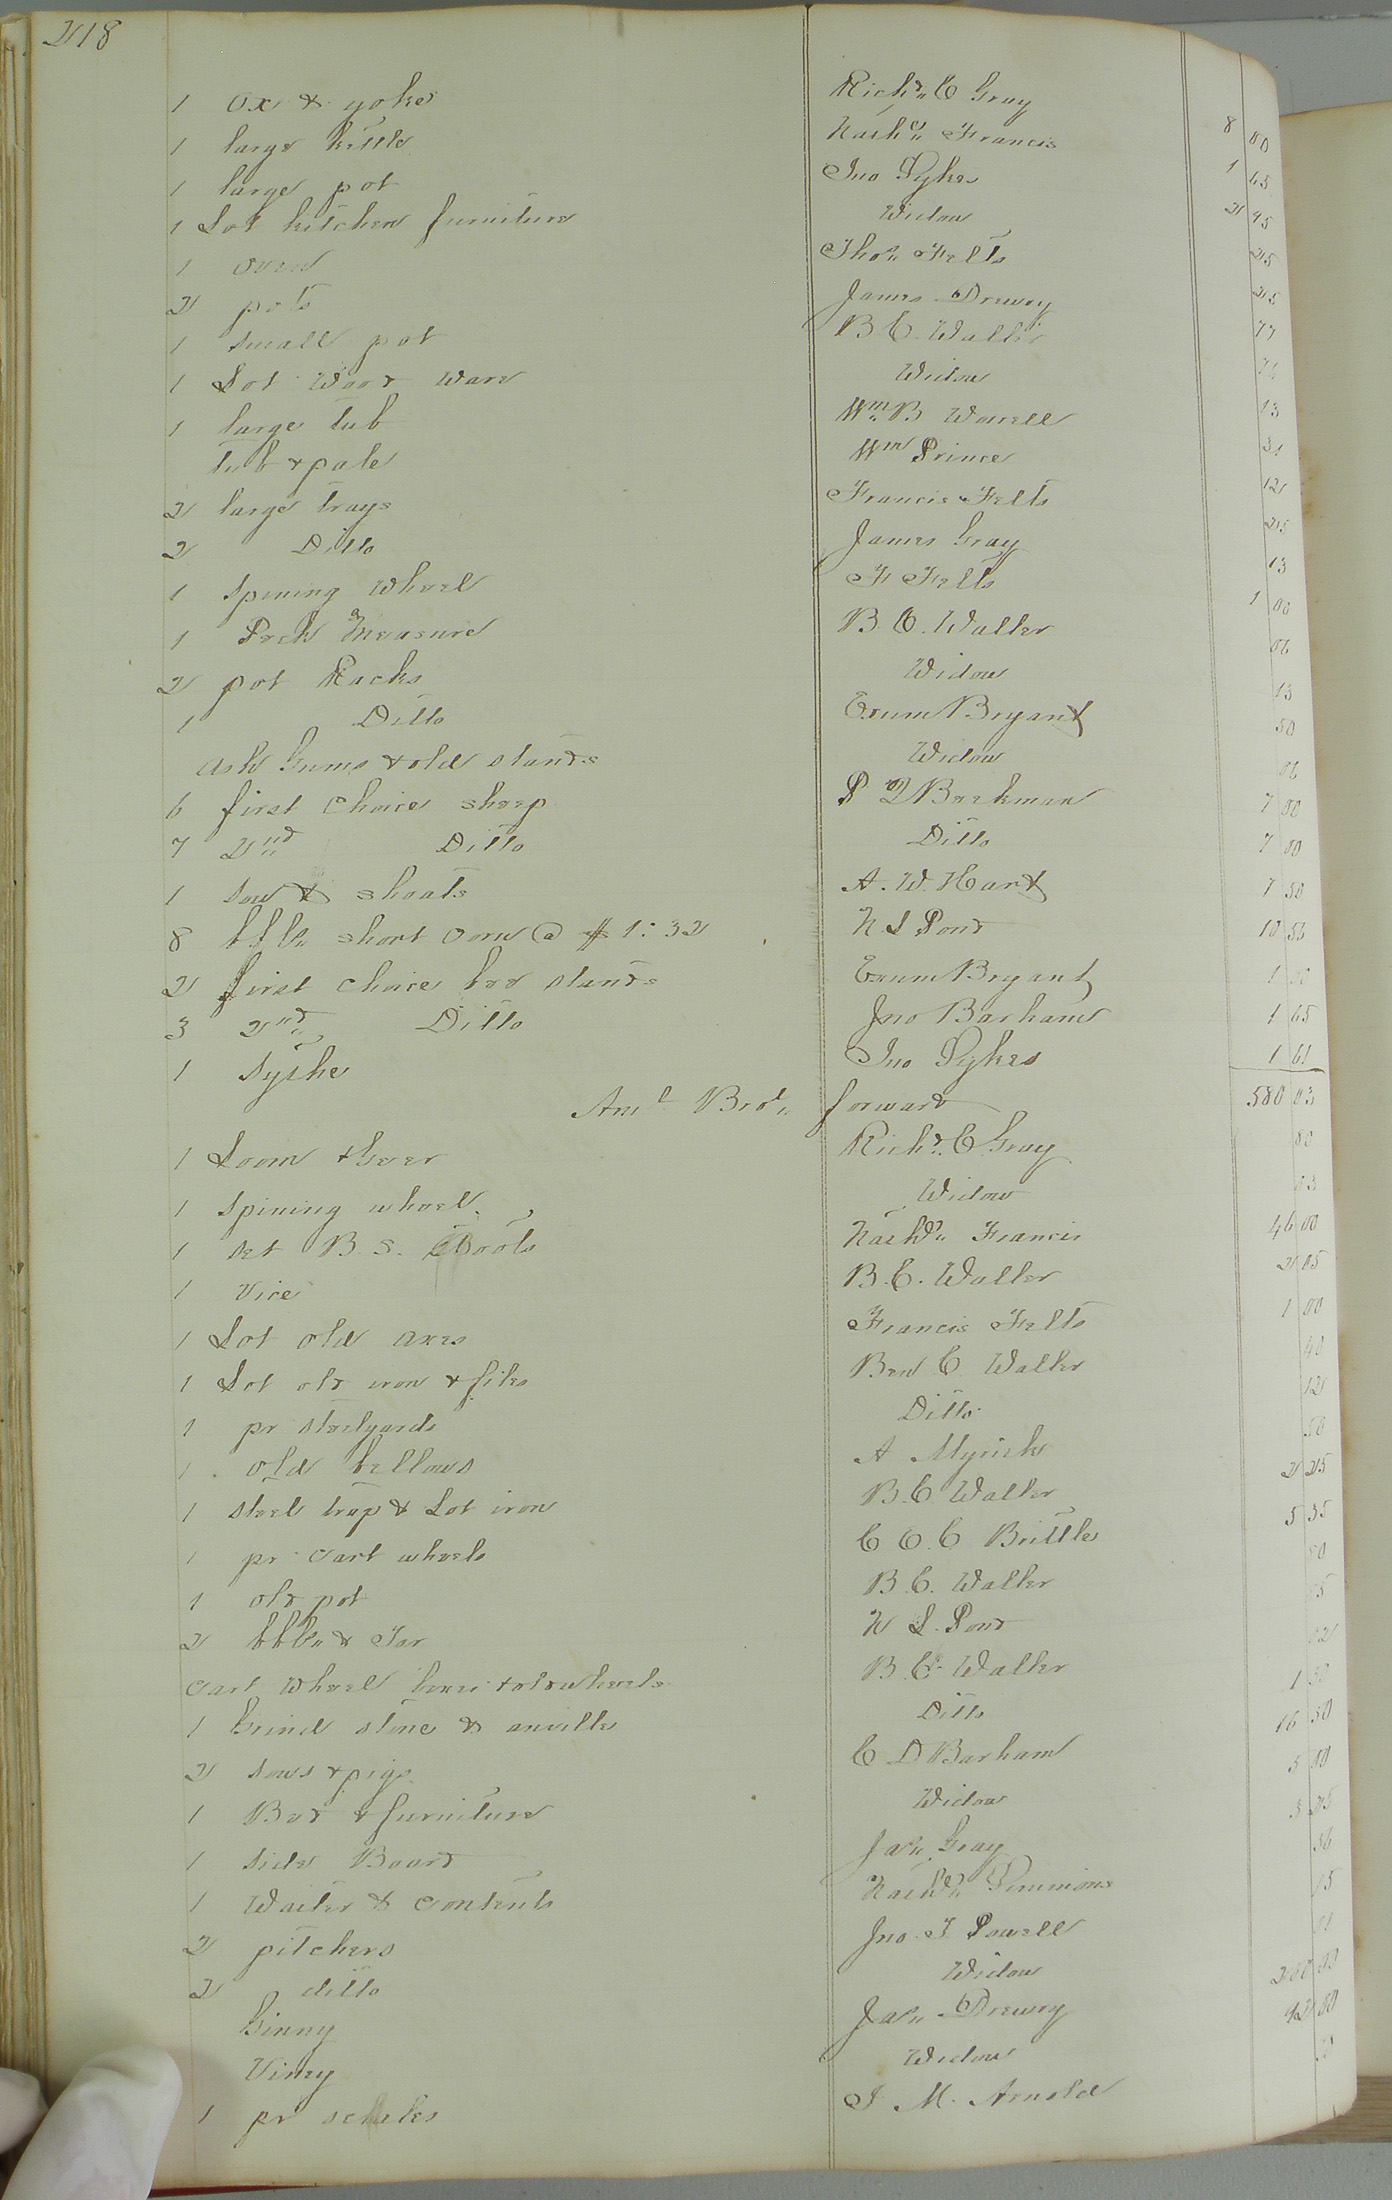 218
1 Ox & yoke Richd. C Gray 8 00
1 large kettle Nathl. Francis 1 65
1 large pot Jno Sykes 2 45
1 Lot kitchen furniture Widow 25
1 oven Thos. Felts 25
2 pots James Drewry 77
1 small pot B C. Waller
1 Lot Wood Ware Widow 13
1 large tub Wm. B Worrell 31
tub & pale Wm Prince 12
2 large trays Francis Felts 25
2 Ditto James Gray 13
1 Spining Wheel F Felts 1 00
1 Peck Measure B. C. Waller 06
2 pot Racks Widow 13
1 Ditto Exum Bryant 50
Ash Gums & old stands Widow 06
6 first Choice sheep P D Beekman 7 00
7 2nd Ditto Ditto 7 00
1 Sow & shoats A. W. Hart 7 50
8 bbls. short Corn @ $1:32 N S Pond 10 56
2 first choice bee stands Exum Bryant 1
3 2nd Ditto Jno Barham 1 65
1 Sythe Jno Sykes 1 61
Amt Brot. forward 580 03
1 Loom & Gear Richd. C. Gray 80
1 Spining wheel Widow 03
1 set B. S. Tools Nathl. Francis 46 00
1 Vice B. C. Waller 2 05
1 Lot old axes Francis Felts 1 00
1 Lot old iron & files Ben C Waller 40
1 pr steelyards Ditto 12
1 old bellows A Myrick 50
1 steel trap & Lot iron B. C. Waller 2 25
1 pr Cart wheels C C. C Brittle 5 35
1 old pot B. C. Waller
2 bbls. & Tar N S. Pond
Cart Wheel boxes & old wheels B C. Waller
1 Grind stone & anville Ditto 16 50
2 Sows & pigs C D Barham 5 00
1 Bed & furniture Widow 3 25
1 Side Board Jas. Gray 56
1 Waiter & Contents Nathl. Simmons
2 pitchers Jno. T Powell
2 ditto Widow
Ginny Jas. Drewry
Viney Widow
1 pr scheles J M. Arnold